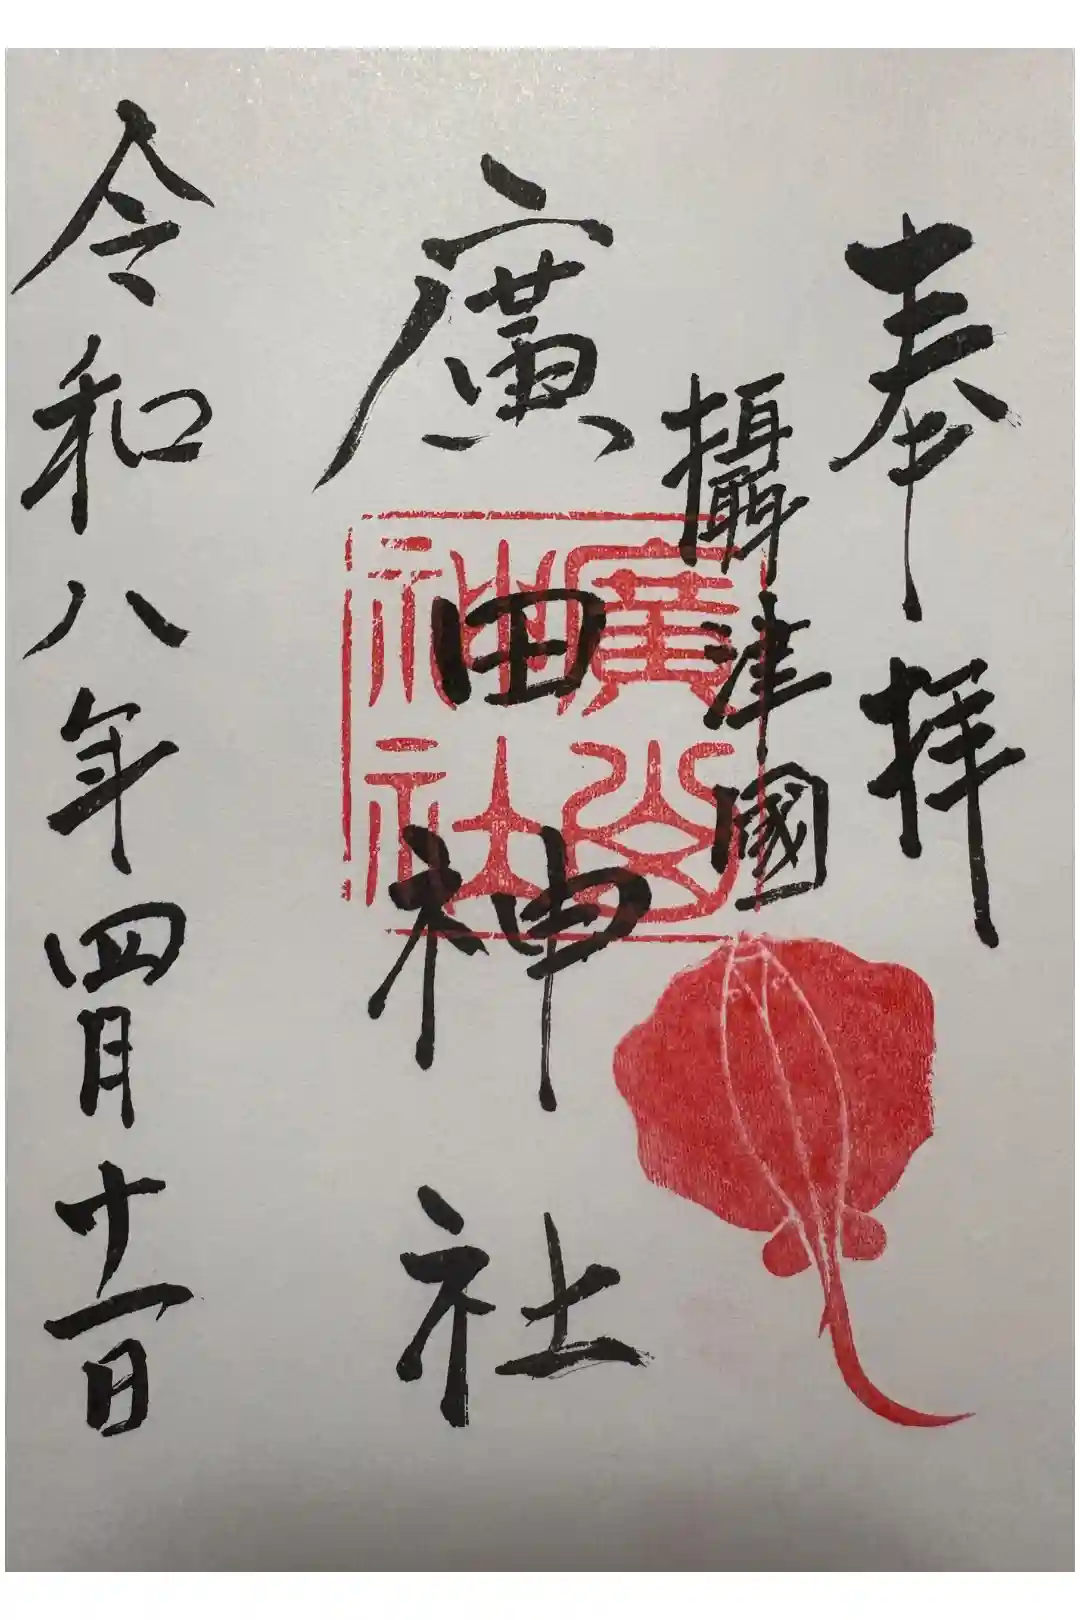 奉拝
攝津國
廣田神社
令和八年四月十一日
廣田
神社